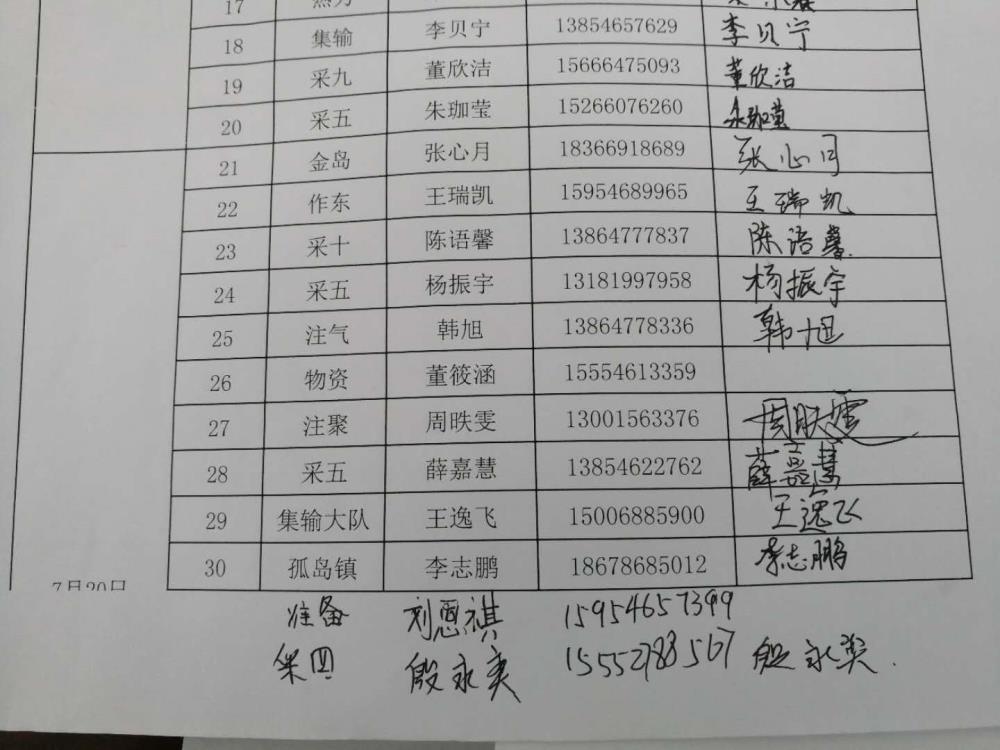 17
18 集输 李贝宁 13854657629 李贝宁
19 采九 董欣洁 15666475093 董欣洁
20 采五 朱珈莹 15266076260 朱珈莹
21 金岛 张心月 18366918689 张心月
22 作东 王瑞凯 15954689965 王瑞凯
23 采十 陈语馨 13864777837 陈语馨
24 采五 杨振宇 13181997958 杨振宇
25 注气 韩旭 13864778336 韩旭
26 物资 董筱涵 15554613359
27 注聚 周昳雯 13001563376 周昳雯
28 采五 薛嘉慧 13854622762 薛嘉慧
29 集输大队 王逸飞 15006885900 王逸飞
30 孤岛镇 李志鹏 18678685012 李志鹏
7月20日
准备 刘恩祺 15954657399
采四 殷永奕 殷永奕